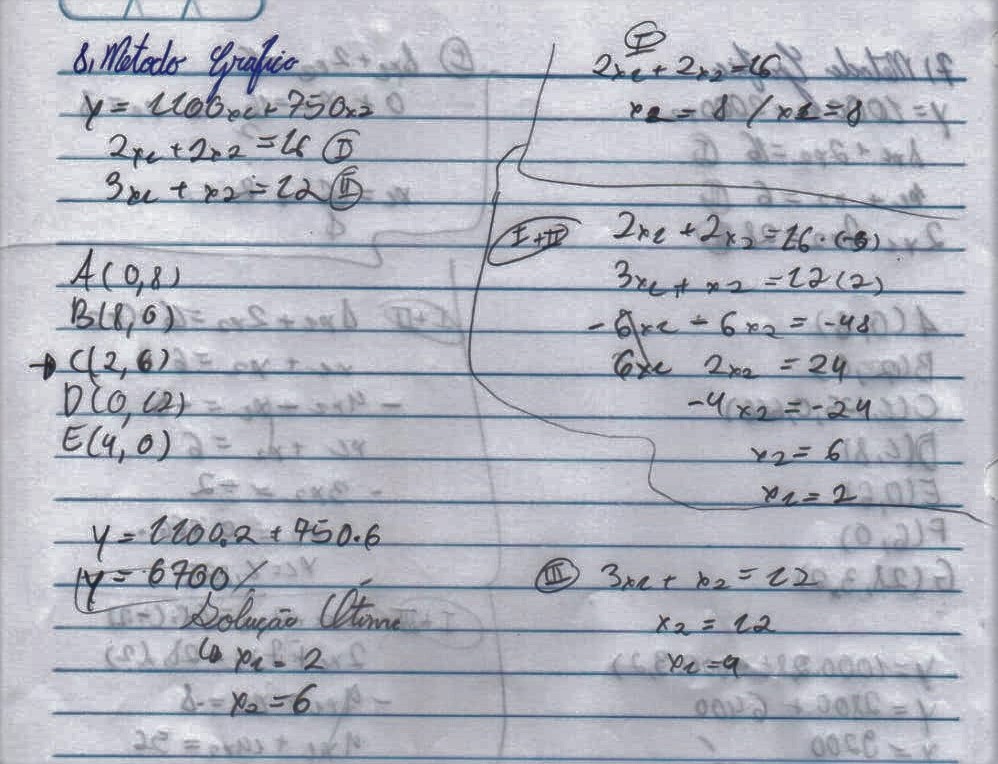 8, Metodo Grafico
y = 1100x1 + 750x2
2x1 + 2x2 = 16 (I)
3x1 + x2 = 12 (II)
A(0,8)
B(8,0)
→ C(2,6)
D(0,12)
E(4,0)
y = 1100.2 + 750.6
y = 6700 /
Solução Ótima
↳ x1 = 2
x2 = 6
(I)
2x1 + 2x2 = 16
x2 = 8 / x1 = 8
(I+II) 2x1 + 2x2 = 16 . (-3)
3x1 + x2 = 12 (2)
- 6x1 - 6x2 = -48
6x1 2x2 = 24
-4x2 = -24
x2 = 6
x1 = 2
(II) 3x1 + x2 = 12
x2 = 12
x1 = 4